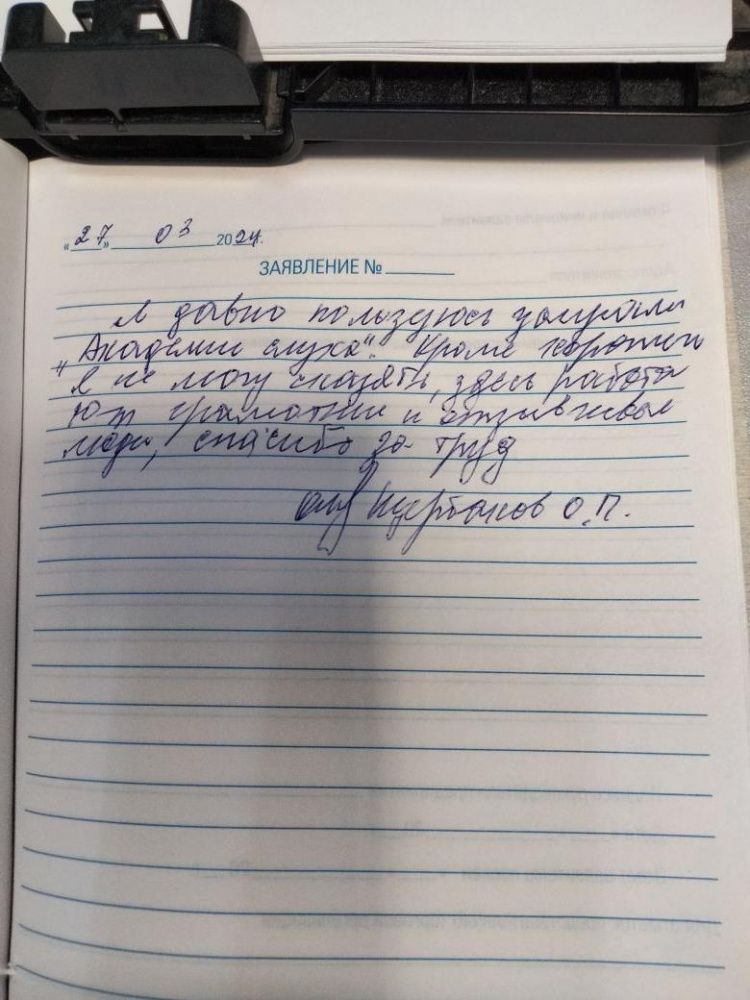 «27» 03 2024г.
ЗАЯВЛЕНИЕ №
Я давно пользуюсь услугами
"Академии слуха". Кроме хорошего
я не могу сказать, здесь работа
ют грамотные и отзывчивые
люди, спасибо за труд
Щербаков О.П.